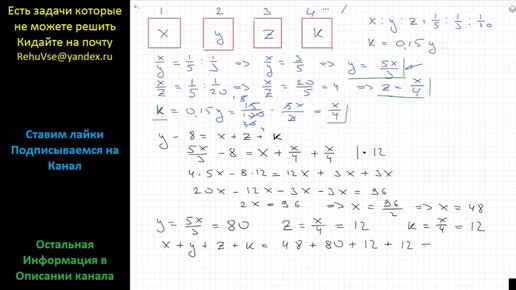 Есть задачи которые
не можете решить
Кидайте на почту
RehuVse@yandex.ru
Ставим лайки
Подписываемся на
Канал
Остальная
Информация в
Описании канала
1 2 3 4 ...
x y z k
x : y : z = 1/5 : 1/3 : 1/20
k = 0,15y
x/y = 1/5 : 1/3 => x/y = 3/5 => y = 5x/3
x/z = 1/5 : 1/20 => x/z = 20/5 = 4 => z = x/4
k = 0,15y = 15/100 · 5x/3 = x/4
y - 8 = x + z + k
5x/3 - 8 = x + x/4 + x/4 | · 12
4 · 5x - 8 · 12 = 12x + 3x + 3x
20x - 12x - 3x - 3x = 96
2x = 96 => x = 96/2 => x = 48
y = 5x/3 = 80 z = x/4 = 12 k = x/4 = 12
x + y + z + k = 48 + 80 + 12 + 12 =